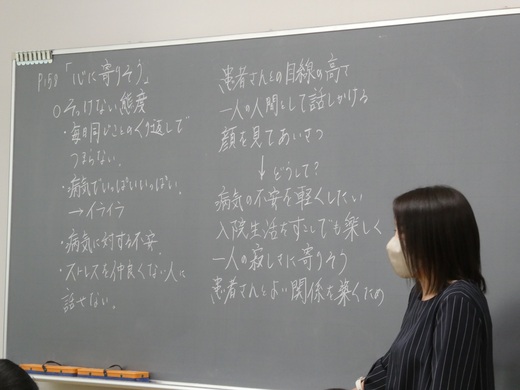 P153「心に寄りそう」
○そっけない態度
・毎日同じことのくり返しで
つまらない.
・病気でいっぱいいっぱい.
→イライラ
・病気に対する不安.
・ストレスを仲良くない人に
話せない.
患者さんとの目線の高さ
一人の人間として話しかける
顔を見てあいさつ
↓どうして?
病気の不安を軽くしたい
入院生活をすこしでも楽しく
一人の寂しさに寄りそう
患者さんとよい関係を築くため